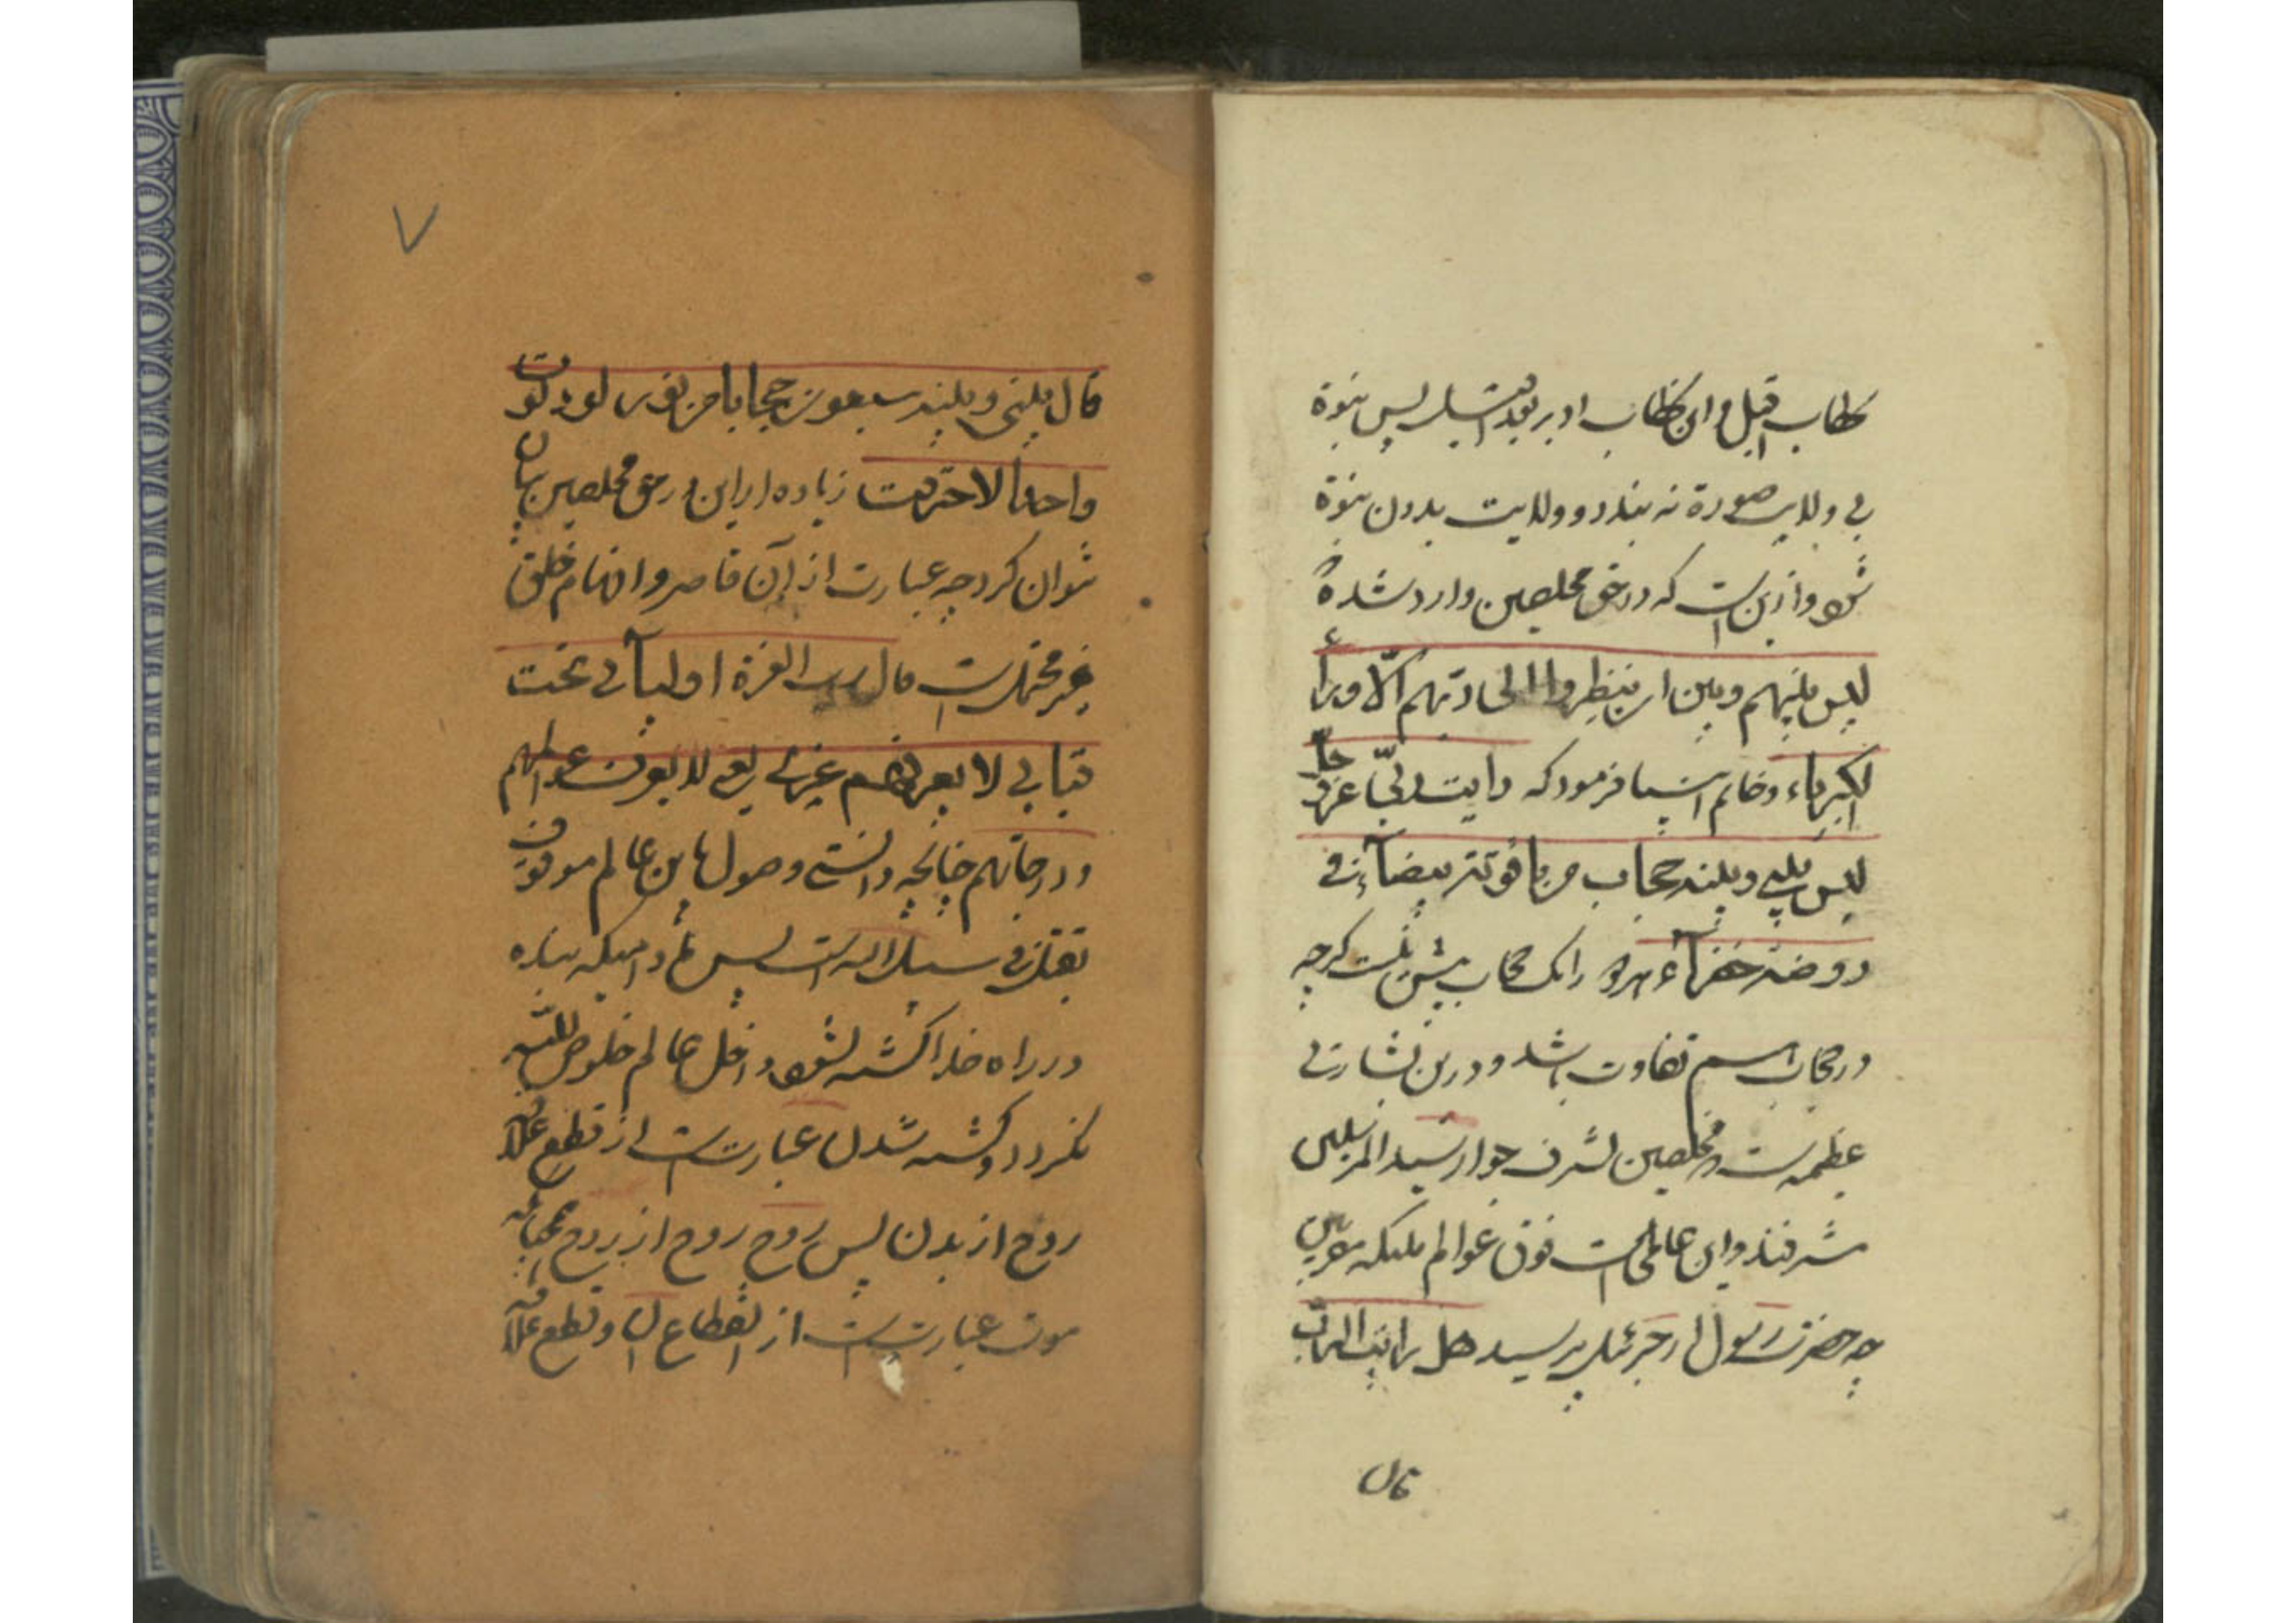 خطاب اقبل و این خطاب ادبر بود پس نبوة
بی ولایت صورة نه بندد و ولایت بدون نبوة
نشود و ازین است که در حق مخلصین وارد شده
لیس بینهم و بین ان ینظروا الی ربهم الا رداء
الکبریاء و خاتم انبیا فرمود که رایت ربی عز و جل
لیس بینی و بینه حجاب من یاقوتة بیضاء فی
روضة خضراء هر دو را یک حجاب بیش نیست کرچه
در حجاب اسم تفاوت باشد و درین بشارتی
عظیمه است و مخلصین بشرف جوار سید المرسلین
مشرفند و این عالمی است فوق عوالم ملیکه مقربین
چه حضرت رسول از جبرئیل پرسید هل رایت الرب
قال
۷
قال بینی و بینه سبعون حجابا من نور لو دنوت
واحدا لاحترقت زیاده از این در حق مخلصین بیان
نتوان کرد چه عبارت از آن قاصر و افهام خلق
غیر محتمل است قال رب العزة اولیائی تحت
قبابی لا یعرفهم غیری یعنی لا یعرف عوالمهم
و درجاتهم چنانچه دانستی وصول باین عالم موقوف
بقتل فی سبیل الله است پس مادامیکه بنده
در راه خدا کشته نشود داخل عالم خلوص لله
نکردد و کشته شدن عبارت است از قطع علاقه
روح از بدن پس روح روح از روح
موت عبارت است از انقطاع آن و قطع علاقه